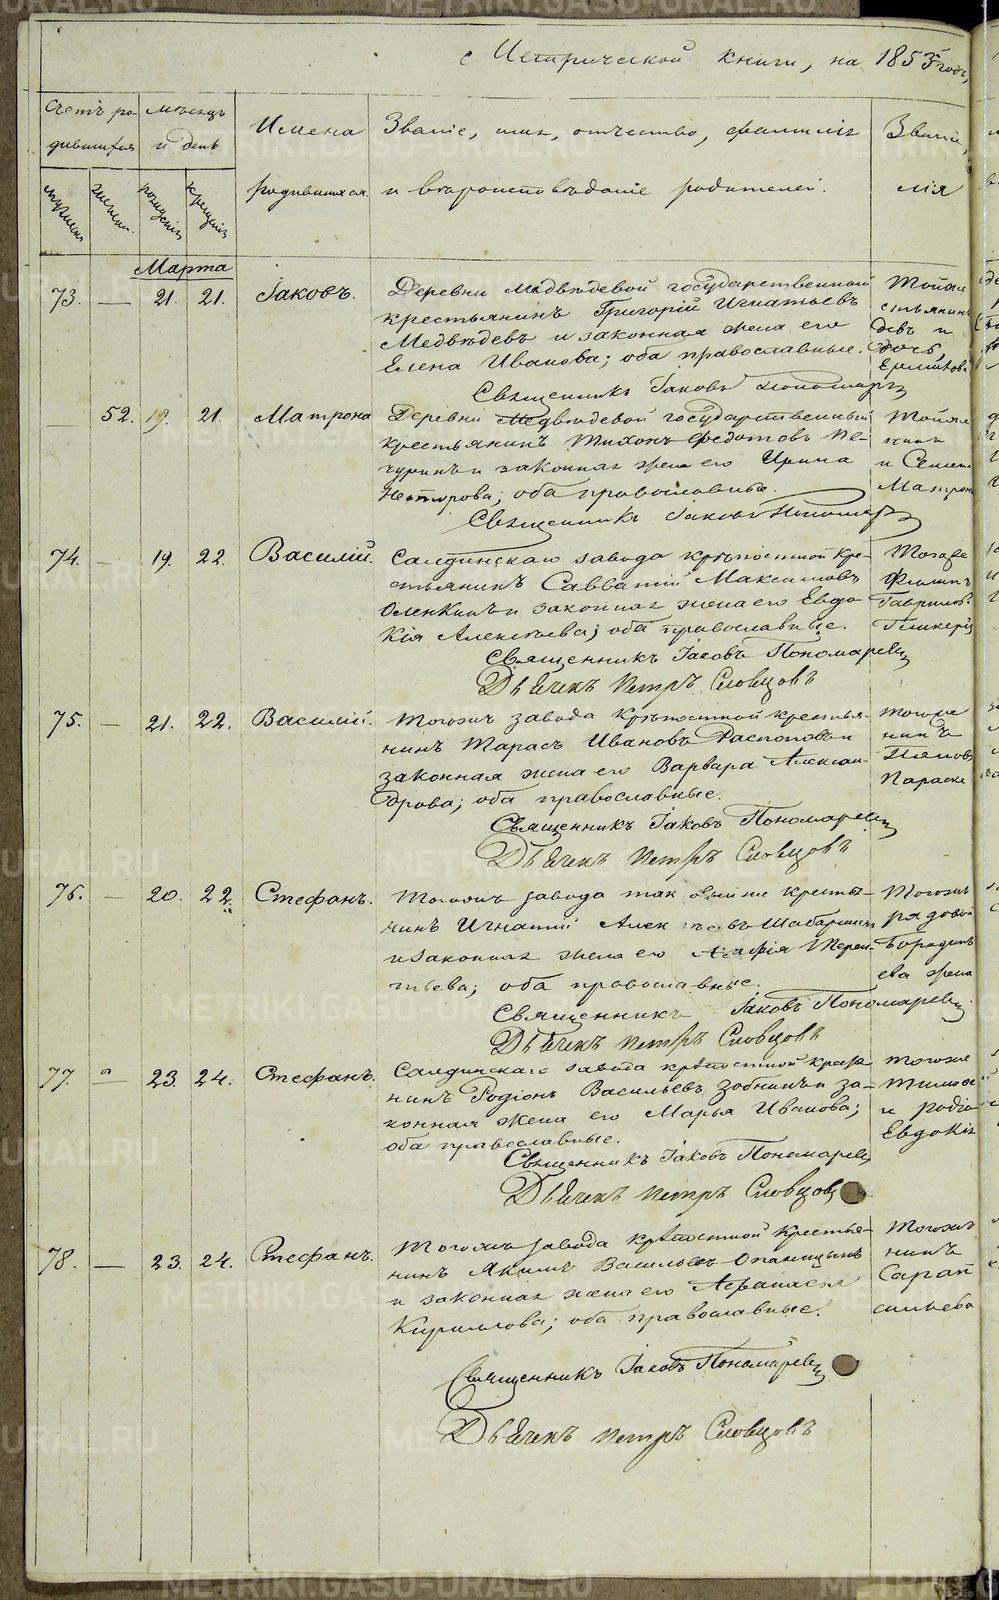 Метрической книги, на 1855 годъ,
Счетъ ро-
дившихся
мѣсяцъ
и день
Имена
родившихся.
Званіе, имя, отчество, фамилія
и вѣроисповѣданіе родителей.
Званіе,
лія
мужеска
женска.
рожденія
крещенія
Марта
73. — 21. 21. Іаковъ. Деревни Медвѣдевой государственный
крестьянинъ Григорій Игнатьевъ
Медвѣдевъ и законная жена его
Елена Иванова; оба православные.
Священникъ Іаковъ Пономаревъ
Тойже
стьянинъ
девъ и
дочь
— 52. 19. 21. Матрона Деревни Медвѣдевой государственный
крестьянинъ Тихонъ Федотовъ Пе-
чуринъ и законная жена его Ирина
Несторова; оба православные.
Священникъ Іаковъ Пономаревъ
Тойже
и Семен
Матрон
74. — 19. 22. Василій. Салдинскаго завода крѣпостной кре-
стьянинъ Савватій Максимовъ
Оленкинъ и законная жена его Евдо-
кія Алексѣева; оба православные.
Священникъ Іаковъ Пономаревъ
Дьячекъ Петръ Словцовъ
Тогоже
Филипъ
Гаврилов.
Гликерія
75. — 21. 22. Василій. Тогожъ завода крѣпостной крестья-
нинъ Тарасъ Ивановъ Распоповъ и
законная жена его Варвара Алексан-
дрова; оба православные.
Священникъ Іаковъ Пономаревъ
Дьячекъ Петръ Словцовъ
тогоже
нинъ
Параске
76. — 20. 22. Стефанъ. Тогожъ завода крестья-
нинъ Игнатій Шабаршинъ
и законная жена его Терен-
тьева; оба православные.
Священникъ Іаковъ Пономаревъ
Дьячекъ Петръ Словцовъ
Тогожъ
рядовой
Бородинъ
ева жена
77. — 23. 24. Стефанъ. Салдинскаго завода крѣпостной крестья-
нинъ Родіонъ Васильевъ Зобнинъ и за-
конная жена его Марья Иванова;
оба православные.
Священникъ Іаковъ Пономаревъ
Дьячекъ Петръ Словцовъ
тогоже
Тимоѳ
и родіо
Евдокія
78. — 23. 24. Стефанъ. Тогожъ завода крѣпостной крестья-
нинъ Якимъ Васильевъ Опаницынъ
и законная жена его Афанасія
Кирилова; оба православные.
Священникъ Іаковъ Пономаревъ
Дьячекъ Петръ Словцовъ
Тогожъ
нинъ
Сарап
сильева
METRIKI.GASO-URAL.RU